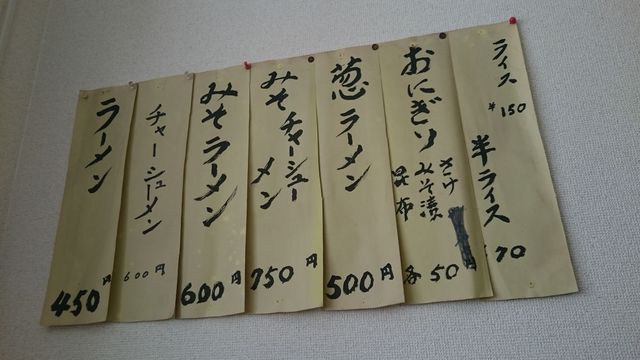 ライス
¥150
半ライス
¥70
おにぎり
さけ
みそ漬
昆布
各50円
葱ラーメン
500円
みそチャーシュー
メン
750円
みそラーメン
600円
チャーシューメン
600円
ラーメン
450円